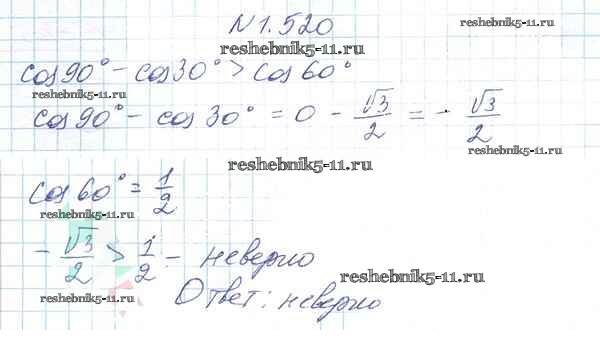 N 1.520
reshebnik5-11.ru
reshebnik5-11.ru
cos 90° - cos 30° > cos 60°
reshebnik5-11.ru
cos 90° - cos 30° = 0 - √3/2 = - √3/2
reshebnik5-11.ru
reshebnik5-11.ru
cos 60° = 1/2
reshebnik5-11.ru
- √3/2 > 1/2 - неверно
reshebnik5-11.ru
reshebnik5-11.ru
Ответ: неверно